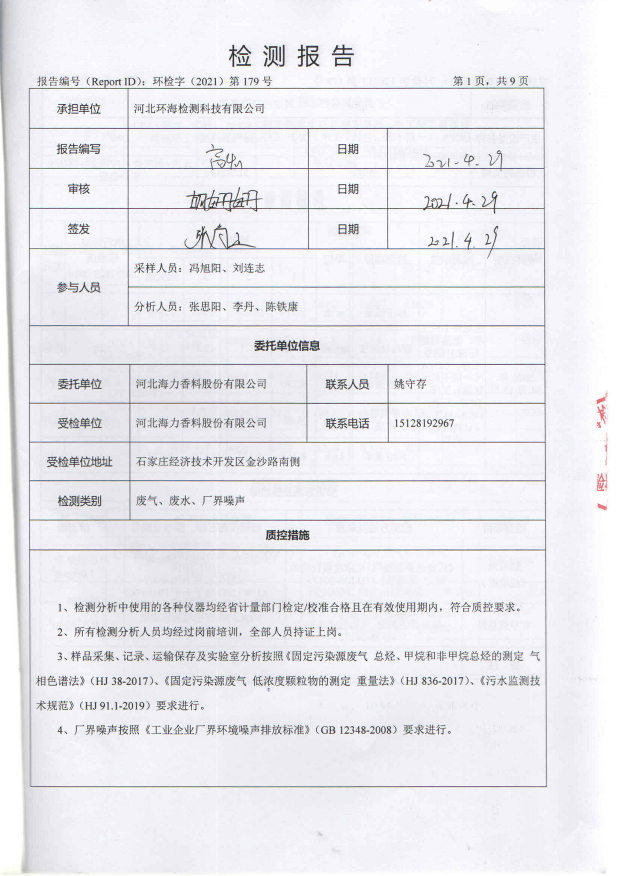 检测报告
报告编号（Report ID）：环检字（2021）第 179 号 第 1 页，共 9 页
承担单位 河北环海检测科技有限公司
报告编写 日期 2021.4.29
审核 日期 2021.4.29
签发 日期 2021.4.29
参与人员
采样人员：冯旭阳、刘连志
分析人员：张思阳、李丹、陈铁康
委托单位信息
委托单位 河北海力香料股份有限公司 联系人员 姚守存
受检单位 河北海力香料股份有限公司 联系电话 15128192967
受检单位地址 石家庄经济技术开发区金沙路南侧
检测类别 废气、废水、厂界噪声
质控措施
1、检测分析中使用的各种仪器均经省计量部门检定/校准合格且在有效使用期内，符合质控要求。
2、所有检测分析人员均经过岗前培训，全部人员持证上岗。
3、样品采集、记录、运输保存及实验室分析按照《固定污染源废气 总烃、甲烷和非甲烷总烃的测定 气
相色谱法》（HJ 38-2017）、《固定污染源废气 低浓度颗粒物的测定 重量法》（HJ 836-2017）、《污水监测技
术规范》（HJ 91.1-2019）要求进行。
4、厂界噪声按照《工业企业厂界环境噪声排放标准》（GB 12348-2008）要求进行。